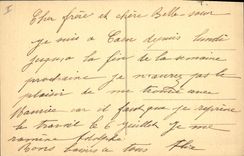 Cher frère et chère Belle-sœur
je suis a Caen depuis lundi
jusqu'a la fin de la semaine
prochaine je n'aurez pas le
plaisir de me trouver avec
Maurice car il faut que je reprene
le travail le 6 juillet je me
Bons baisers a tous